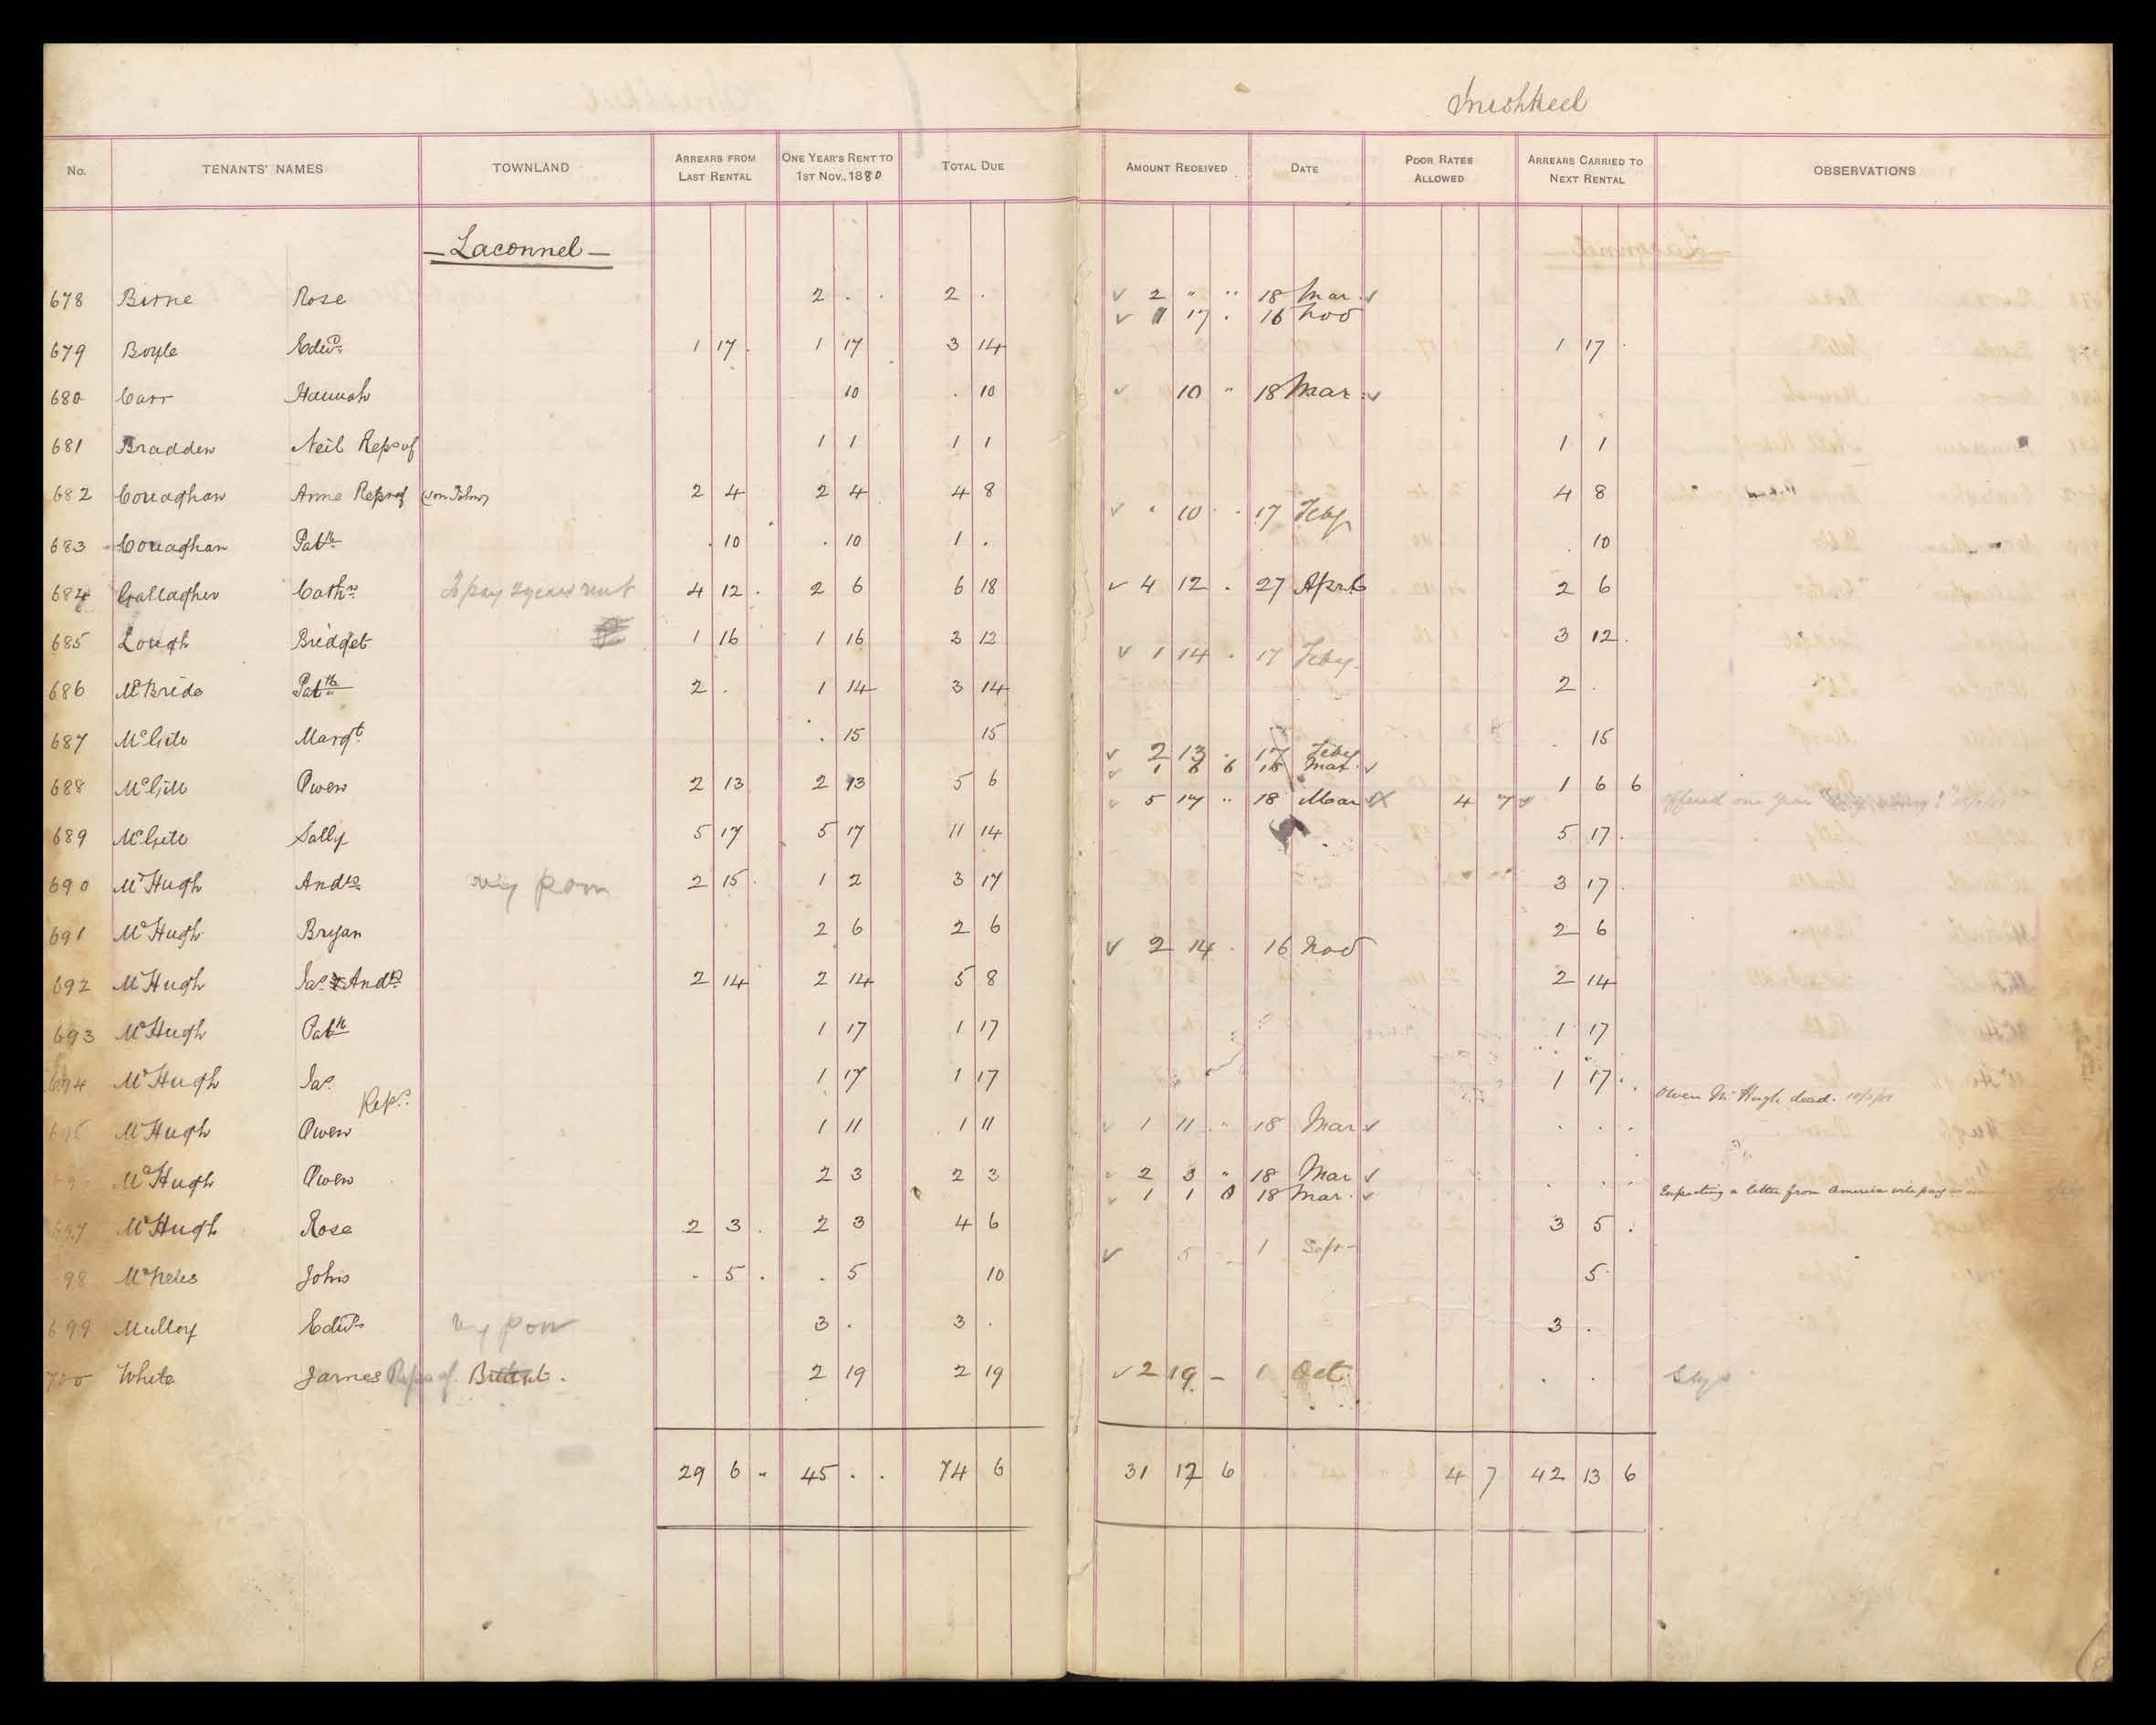 Inishkeel
No. TENANTS' NAMES TOWNLAND ARREARS FROM LAST RENTAL ONE YEAR'S RENT TO 1ST NOV., 1880 TOTAL DUE AMOUNT RECEIVED DATE POOR RATES ALLOWED ARREARS CARRIED TO NEXT RENTAL OBSERVATIONS
— Laconnel —
678 Birne Rose 2 . . 2 . ✓ 2 " " 18 Mar ✓
✓ 1 17 . 16 Nov
679 Boyle Edwd. 1 17 . 1 17 3 14 1 17 .
680 Carr Hannah 10 . 10 ✓ 10 " 18 Mar ✓
681 Bradden Neil Reps of 1 1 1 1 1 1
682 Conaghan Anne Reps of (son John) 2 4 2 4 4 8 4 8
✓ . 10 . . 17 Feby
683 Conaghan Patk. . 10 . 10 1 . . 10
684 Gallagher Cathn. To pay 2 years rent 4 12 . 2 6 6 18 ✓ 4 12 . 27 April 2 6
685 Lough Bridget 1 16 1 16 3 12 3 12 .
✓ 1 14 . 17 Feby.
686 McBride Patk. 2 . 1 14 3 14 2 .
687 McGill Margt. . 15 15 . 15
✓ 2 13 . 17 Feby
✓ 1 6 6 18 Mar. ✓
688 McGill Owen 2 13 2 13 5 6 1 6 6
✓ 5 17 " 18 Mar ✓ 4 7 offered one year
689 McGill Sally 5 17 5 17 11 14 5 17 .
690 McHugh Andw. very poor 2 15 . 1 2 3 17 3 17 .
691 McHugh Bryan 2 6 2 6 2 6
✓ 2 14 . 16 Nov
692 McHugh Jas. & Andw. 2 14 2 14 5 8 2 14
693 McHugh Patk. 1 17 1 17 1 17
694 McHugh Jas. 1 17 1 17 1 17 .
Reps. Owen McHugh dead.
695 McHugh Owen 1 11 1 11 ✓ 1 11 " 18 Mar ✓ . . .
McHugh Owen 2 3 2 3 ✓ 2 3 " 18 Mar ✓ . . .
✓ 1 1 0 18 Mar. ✓ Expecting a letter from America will pay
697 McHugh Rose 2 3 . 2 3 4 6 3 5 .
✓ 5 - 1 Sept
98 McNelis John . 5 . . 5 10 5
699 Mulloy Edwd. very poor 3 . 3 . 3 .
700 White James Reps of 2 19 2 19 ✓ 2 19 - 1 Oct . .
29 6 " 45 . . 74 6 31 17 6 4 7 42 13 6